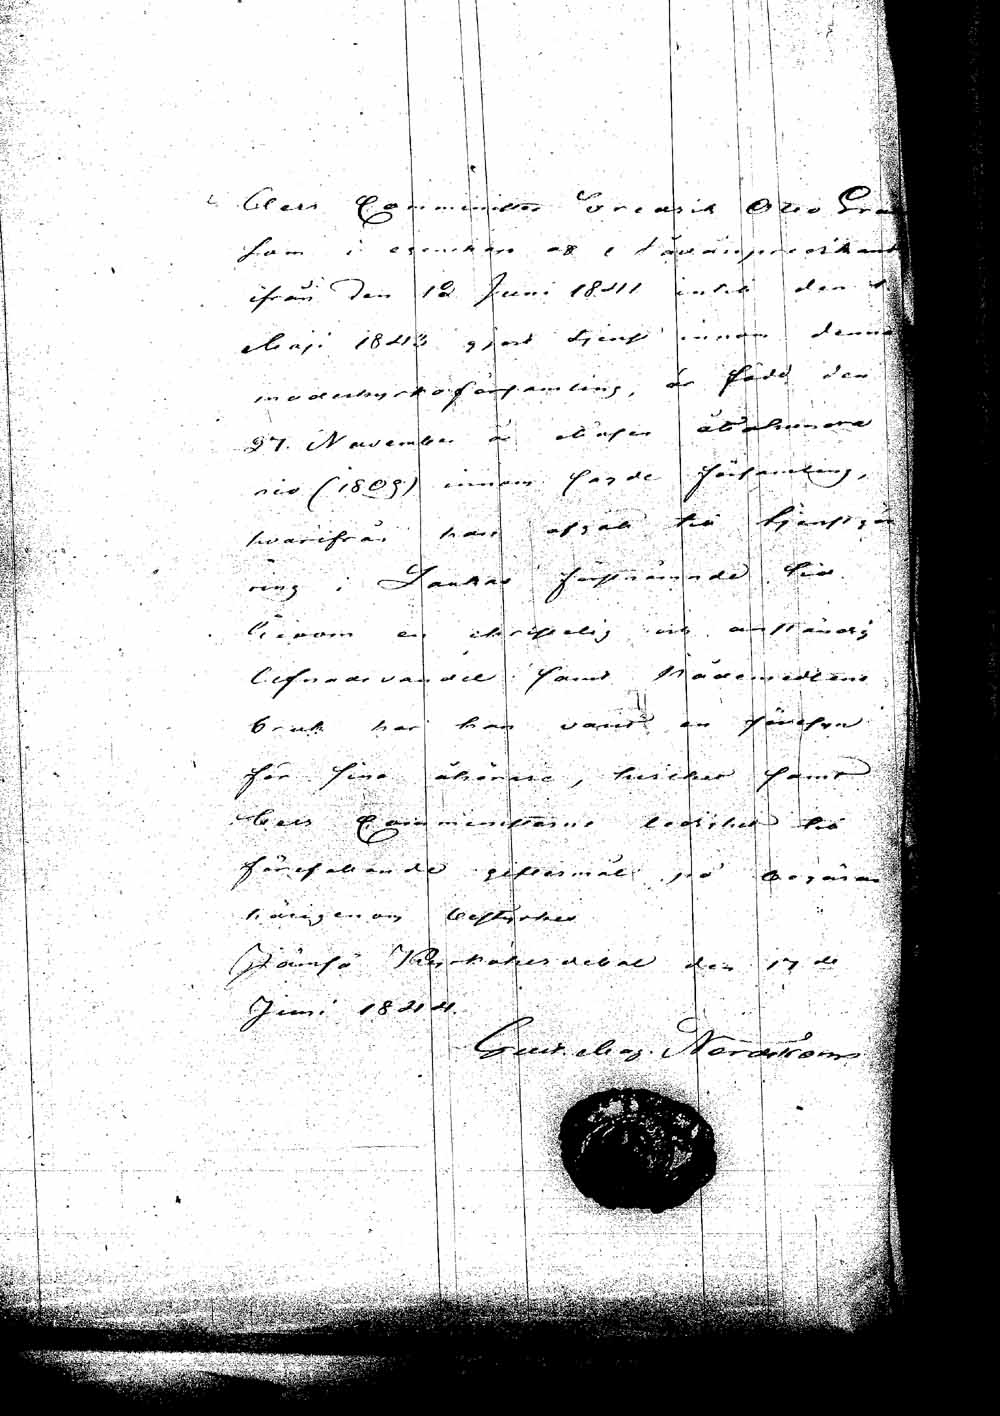 Herr Comministern Fredrik Otto Grå
som i egenskap af e. d. Savanpredikant
ifrån den 12 Juni 1841 intill den 1
Maji 1843 gjort tjenst innom denna
moderkyrkoförsamling, är född den
27. November år adertonhundra
nio (1809) innom församling,
hvarifrån han afgått till tjenstgö
ring i Laukas förstnämnde tid.
Genom en christelig och anständig
lefnadsvandel samt Nådemedlens
bruk har han varit en föresyn
för sina åhörare, hvilket samt
Herr Comministerns ledighet till
förefallande giftermål på begäran
härigenom bestyrkes
Jämsä Kyrkoherdebol den 17 de
Juni 1844.
Gust. Mag. Nordström